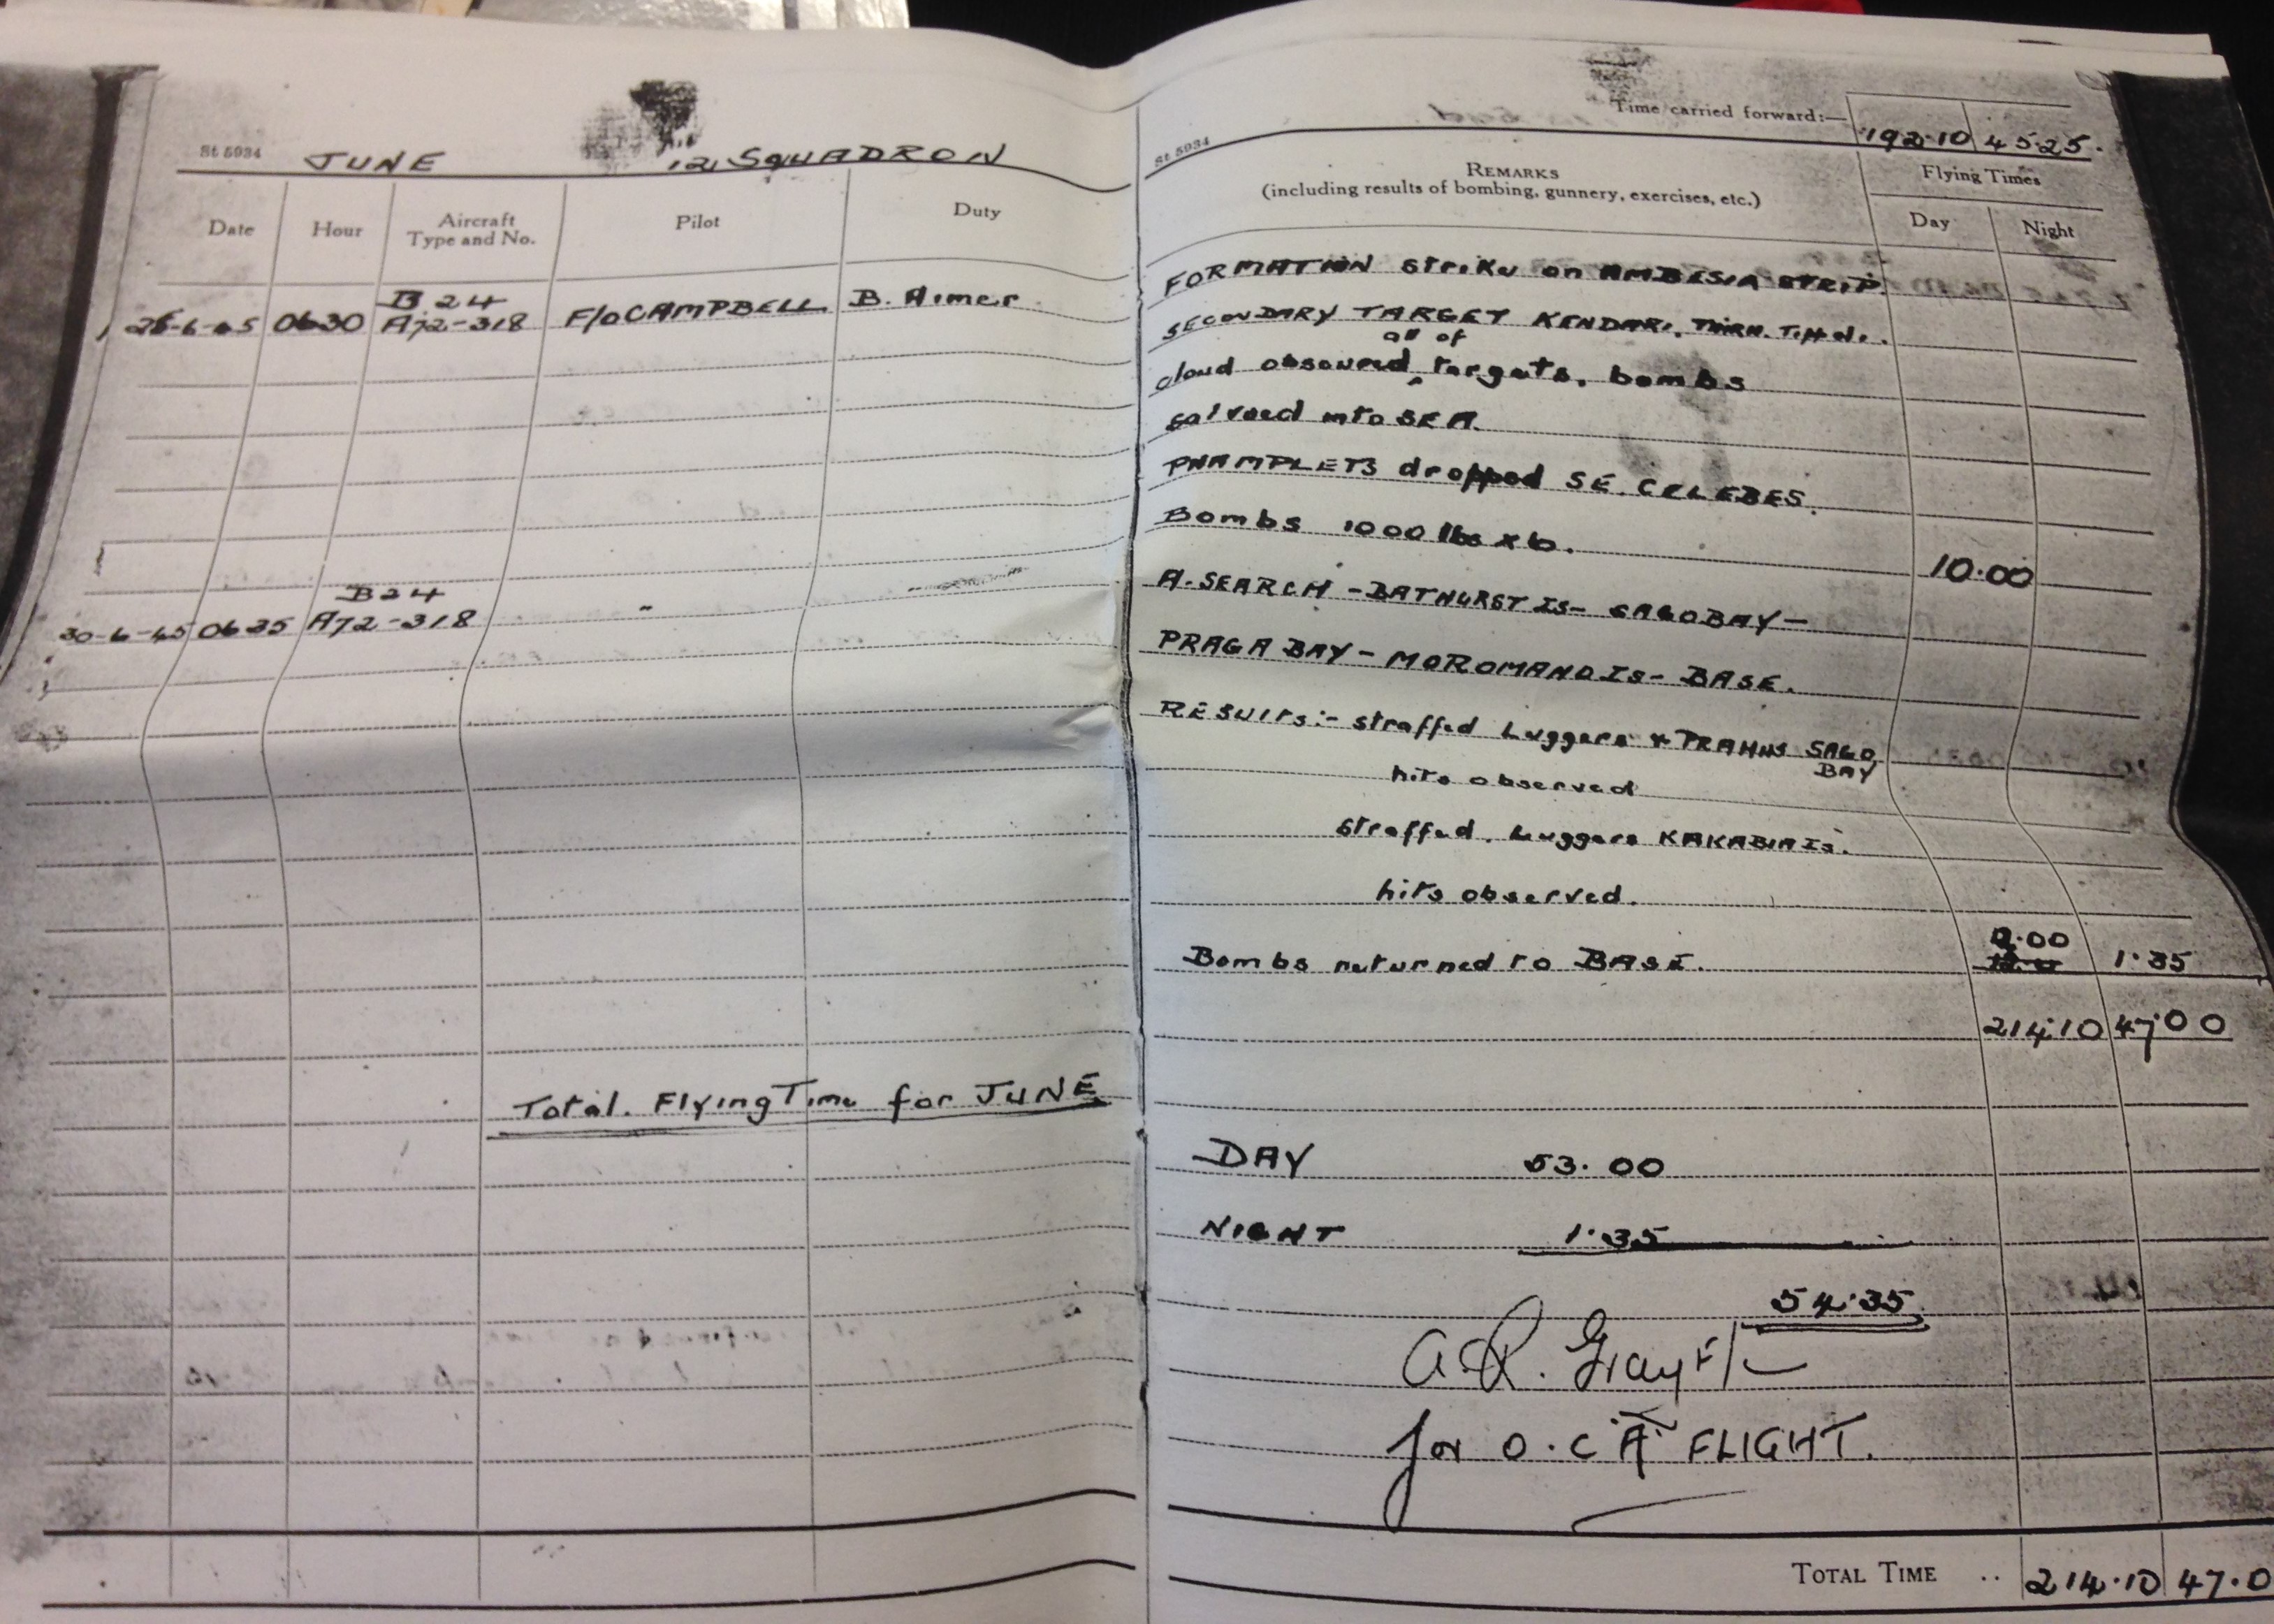 St 5934 JUNE 12 SQUADRON
Date Hour Aircraft Type and No. Pilot Duty
B 24
26-6-45 0630 A72-318 F/O CAMPBELL B. Aimer
B24
30-6-45 0635 A72-318 "
Total. Flying Time for JUNE
Time carried forward:— 192.10 45.25.
St 5934
REMARKS
(including results of bombing, gunnery, exercises, etc.)
Flying Times
Day Night
FORMATION strike on AMBESIA STRIP.
SECONDARY TARGET KENDARI,
all of
cloud obscured targets. bombs
salvoed into SEA.
PHAMPLETS dropped SE. CELEBES.
Bombs 1000 lbs x 6. 10.00
A. SEARCH - BATHURST IS - SAGO BAY -
PRAGA BAY - MOROMANO IS - BASE.
RESULTS:- straffed Luggers & PRAHUS SAGO
BAY
hits observed
straffed. Luggers KAKABIA IS.
hits observed.
12.00
Bombs returned to BASE. 1.35
214.10 47.00
DAY 53.00
NIGHT 1.35
54.35
A.R. Gray F/L
for O.C A FLIGHT.
TOTAL TIME .. 214.10 47.0